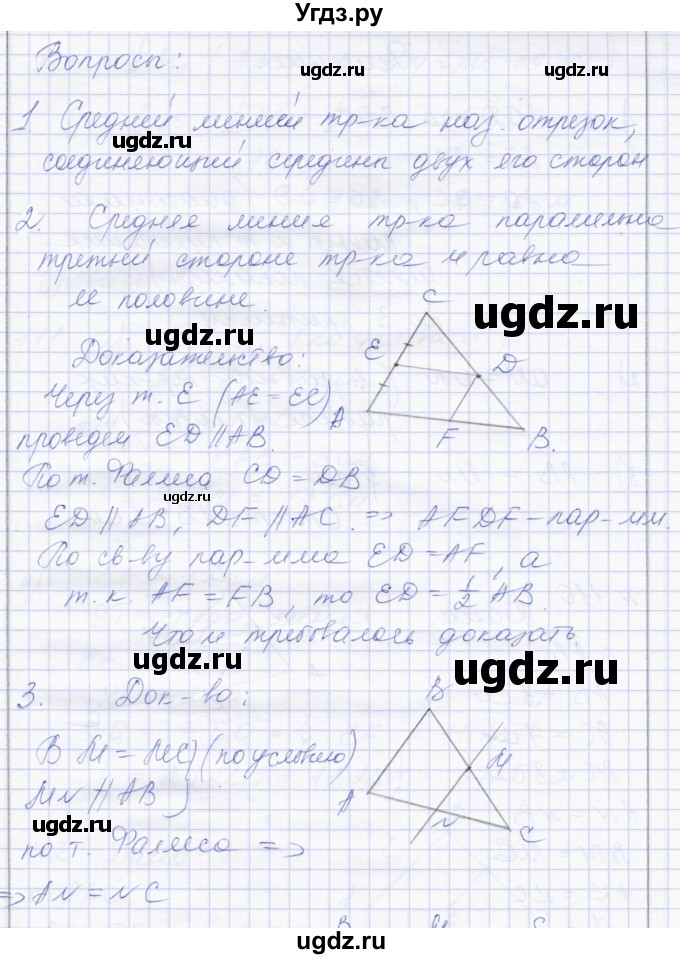 Угдз.ру
Вопросы:
ugdz.ru
ugdz.ru
1. Средней линией тр-ка наз. отрезок,
ugdz.ru
соединяющий середины двух его сторон
2. Средняя линия тр-ка параллельна
третьей стороне тр-ка и равна
ugdz.ru
её половине.
ugdz.ru
ugdz.ru
C
E
D
A
F
B.
Доказательство:
Через т. E (AE = EC)
проведем ED || AB.
По т. Фалеса CD = DB
ugdz.ru
ED || AB, DF || AC. => AEDF – пар-мм.
По св-ву пар-мма ED = AF, а
т.к. AF = FB, то ED = 1/2 AB.
Что и требовалось доказать.
ugdz.ru
ugdz.ru
3. Док-во:
B
M
A
N
C
BM = MC (по условию)
MN || AB
ugdz.ru
по т. Фалеса =>
=> AN = NC
ugdz.ru
B M C
ugdz.ru